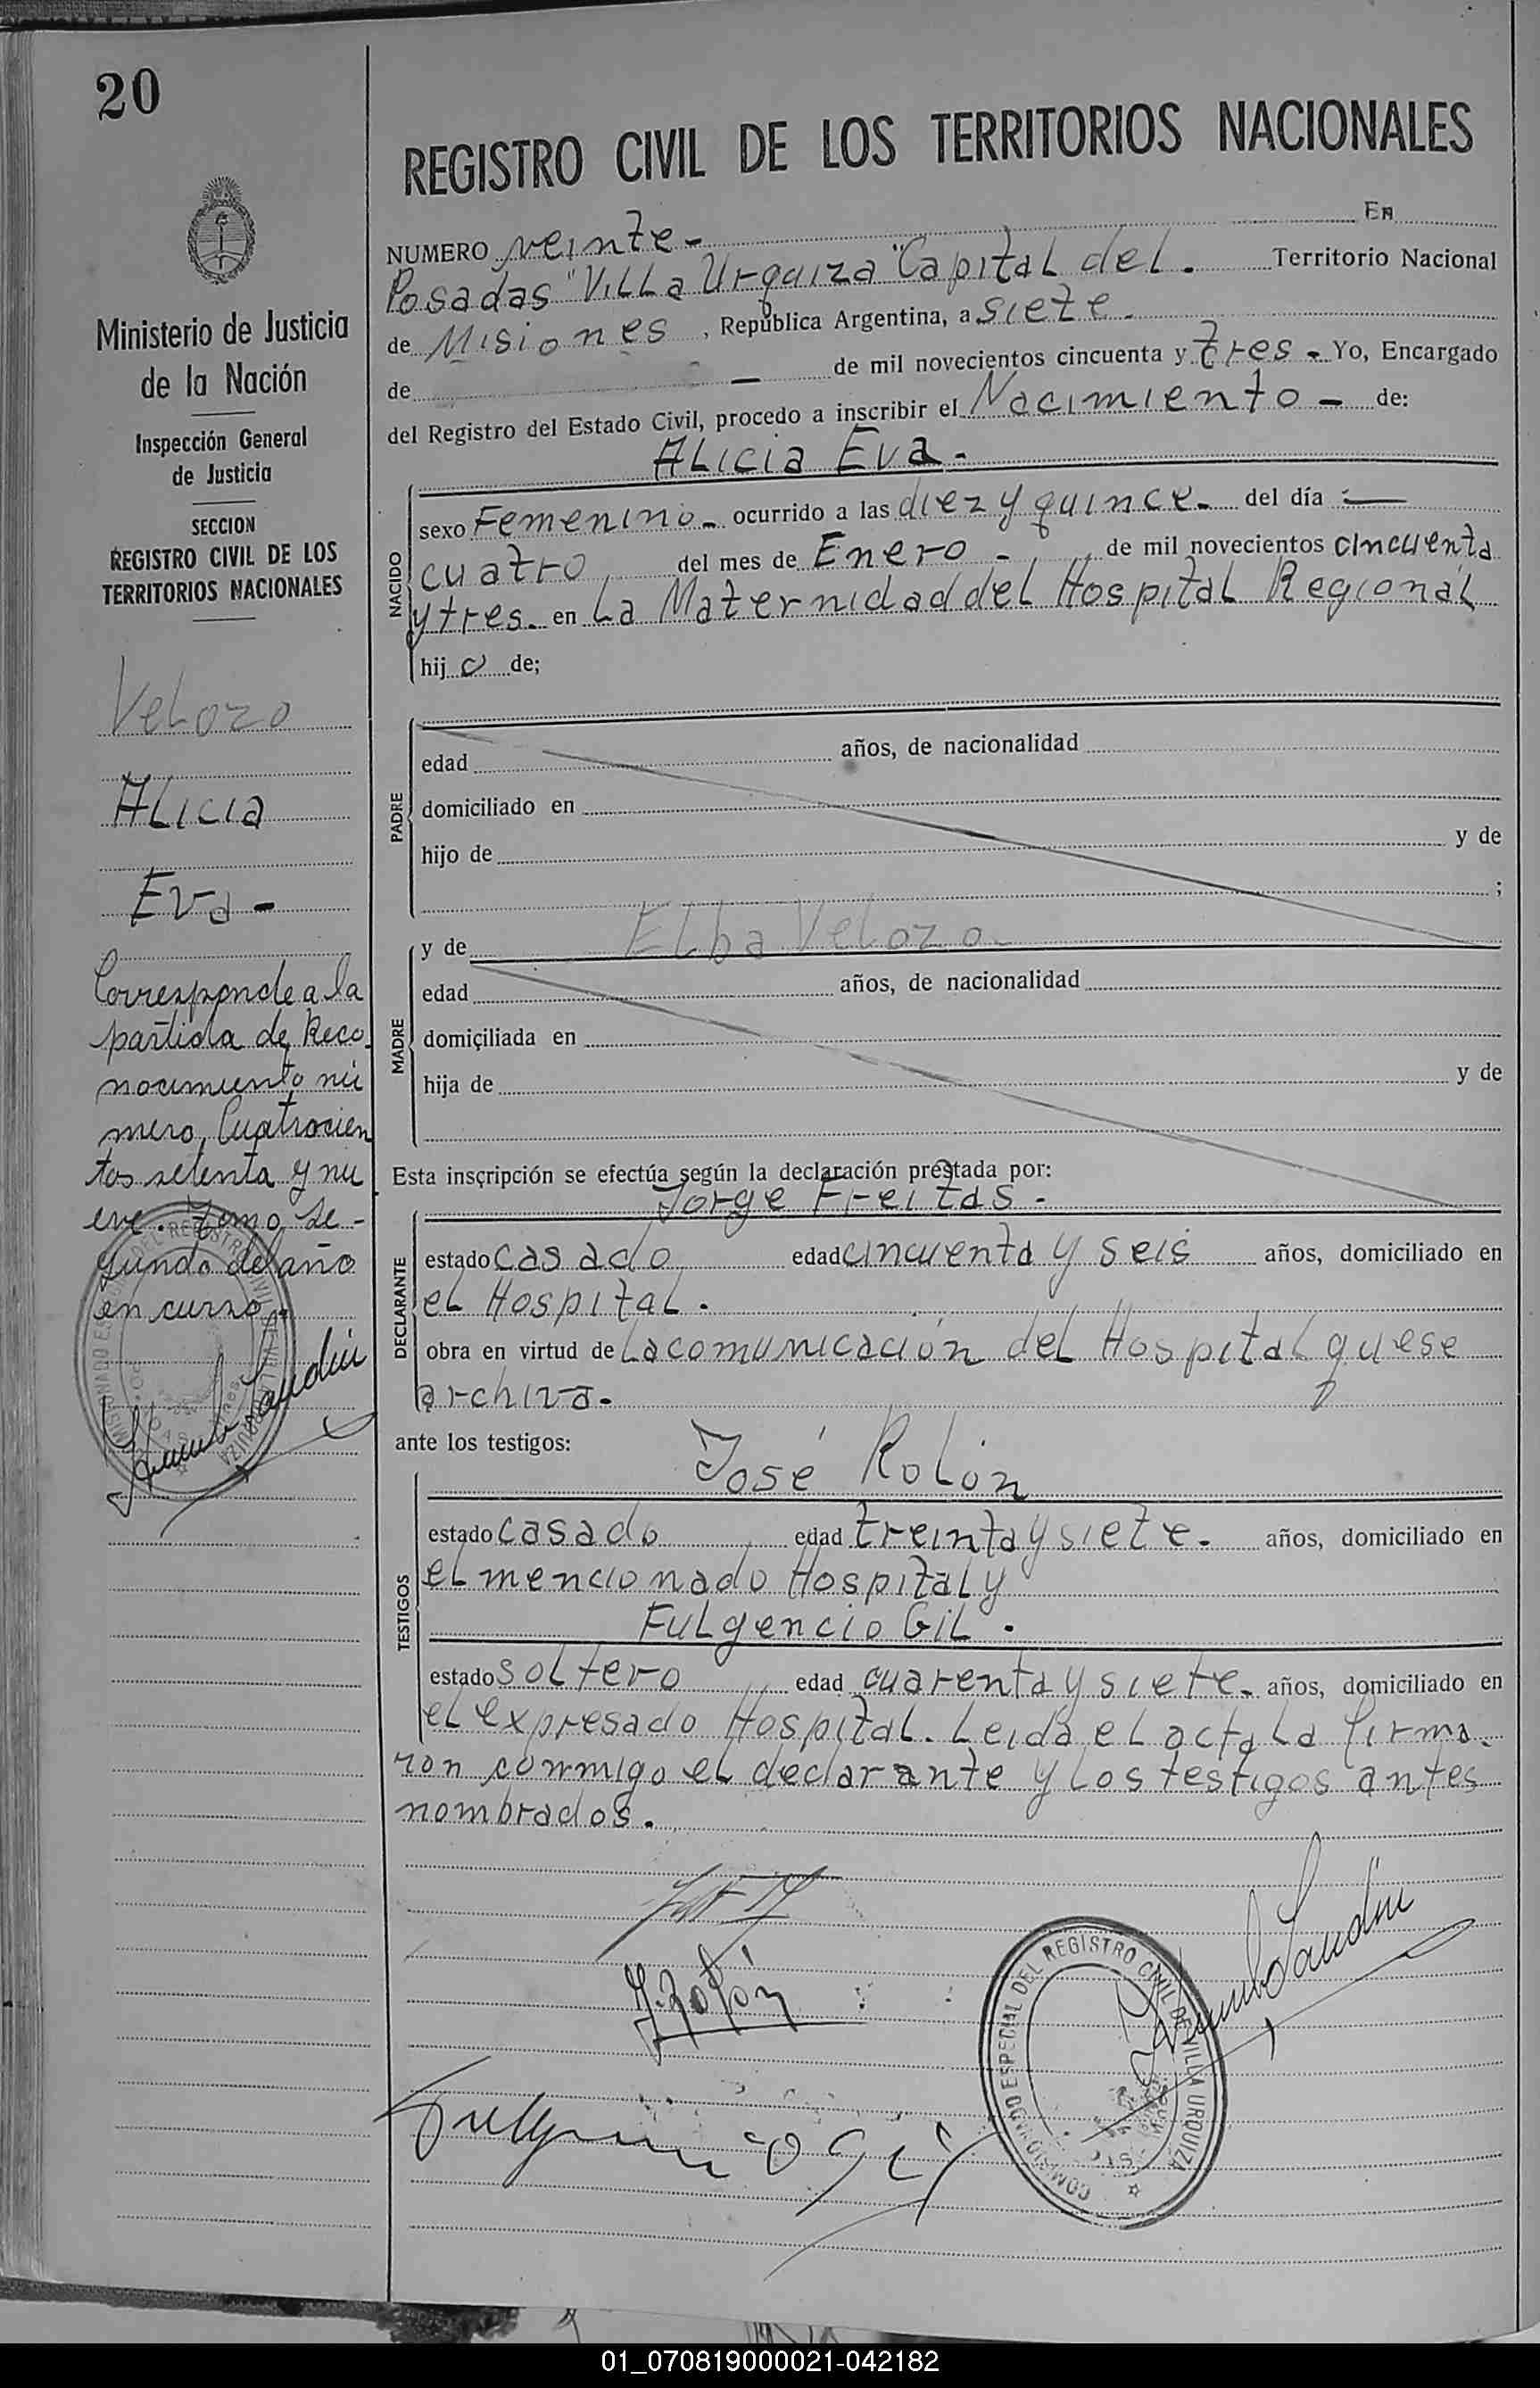 20
Ministerio de Justicia
de la Nación
Inspección General
de Justicia
SECCION
REGISTRO CIVIL DE LOS
TERRITORIOS NACIONALES
Velozo
Alicia
Eva -
Corresponde a la
partida de Reco-
nocimiento nú
mero, Cuatrocien
tos setenta y nu
eve. Tomo Se-
gundo del año
en curso.-
REGISTRO CIVIL DE LOS TERRITORIOS NACIONALES
NUMERO veinte - En
Posadas "Villa Urquiza" Capital del. Territorio Nacional
de Misiones, República Argentina, a siete.
de — de mil novecientos cincuenta y tres - Yo, Encargado
del Registro del Estado Civil, procedo a inscribir el Nacimiento - de:
Alicia Eva -
NACIDO
sexo Femenino - ocurrido a las diez y quince - del día :—
cuatro del mes de Enero - de mil novecientos cincuenta
y tres - en La Maternidad del Hospital Regional
hij a de;
PADRE
edad años, de nacionalidad
domiciliado en
hijo de y de
;
MADRE
y de Elba Velozo -
edad años, de nacionalidad
domiciliada en
hija de y de
Esta inscripción se efectúa según la declaración prestada por:
Jorge Freitas -
DECLARANTE
estado casado edad cincuenta y seis años, domiciliado en
el Hospital.
obra en virtud de la comunicación del Hospital que se
archiva.
ante los testigos:
José Rolón
TESTIGOS
estado casado edad treinta y siete - años, domiciliado en
el mencionado Hospital y
Fulgencio Gil.
estado soltero edad cuarenta y siete - años, domiciliado en
el expresado Hospital. Leida el acta la firma-
ron conmigo el declarante y los testigos antes
nombrados.
J. Rolón
Fulgencio Gil
COMISIONADO ESPECIAL DEL REGISTRO CIVIL DE VILLA URQUIZA
01_070819000021-042182